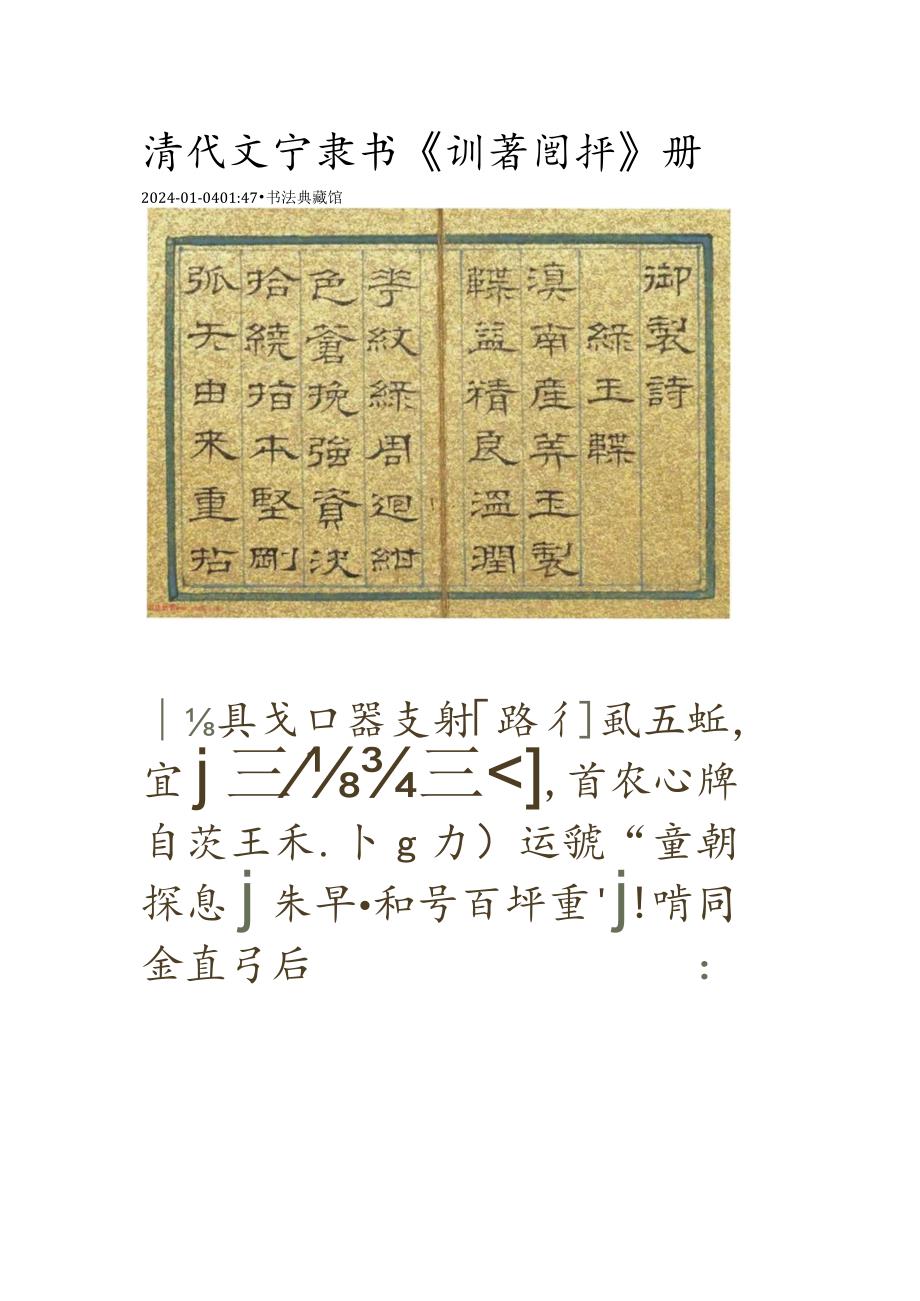 清代文宁隶书《训著闿抨》册
2024-01-0401:47•书法典藏馆
御製詩
綠玉鞢
滇南産美玉製
鞢益精良溫潤
華紋綠周迴紺
色蒼挽強資決
拾繞指本堅剛
弧矢由来重拈
｜⅛具戈口器支射「路彳]虱五蚯，
宜j三⁄⅛¾三<],首农心牌
自茨王禾.卜g力）运虢“童朝
探息j朱早•和号百坪重'j!啃同
金直弓后：